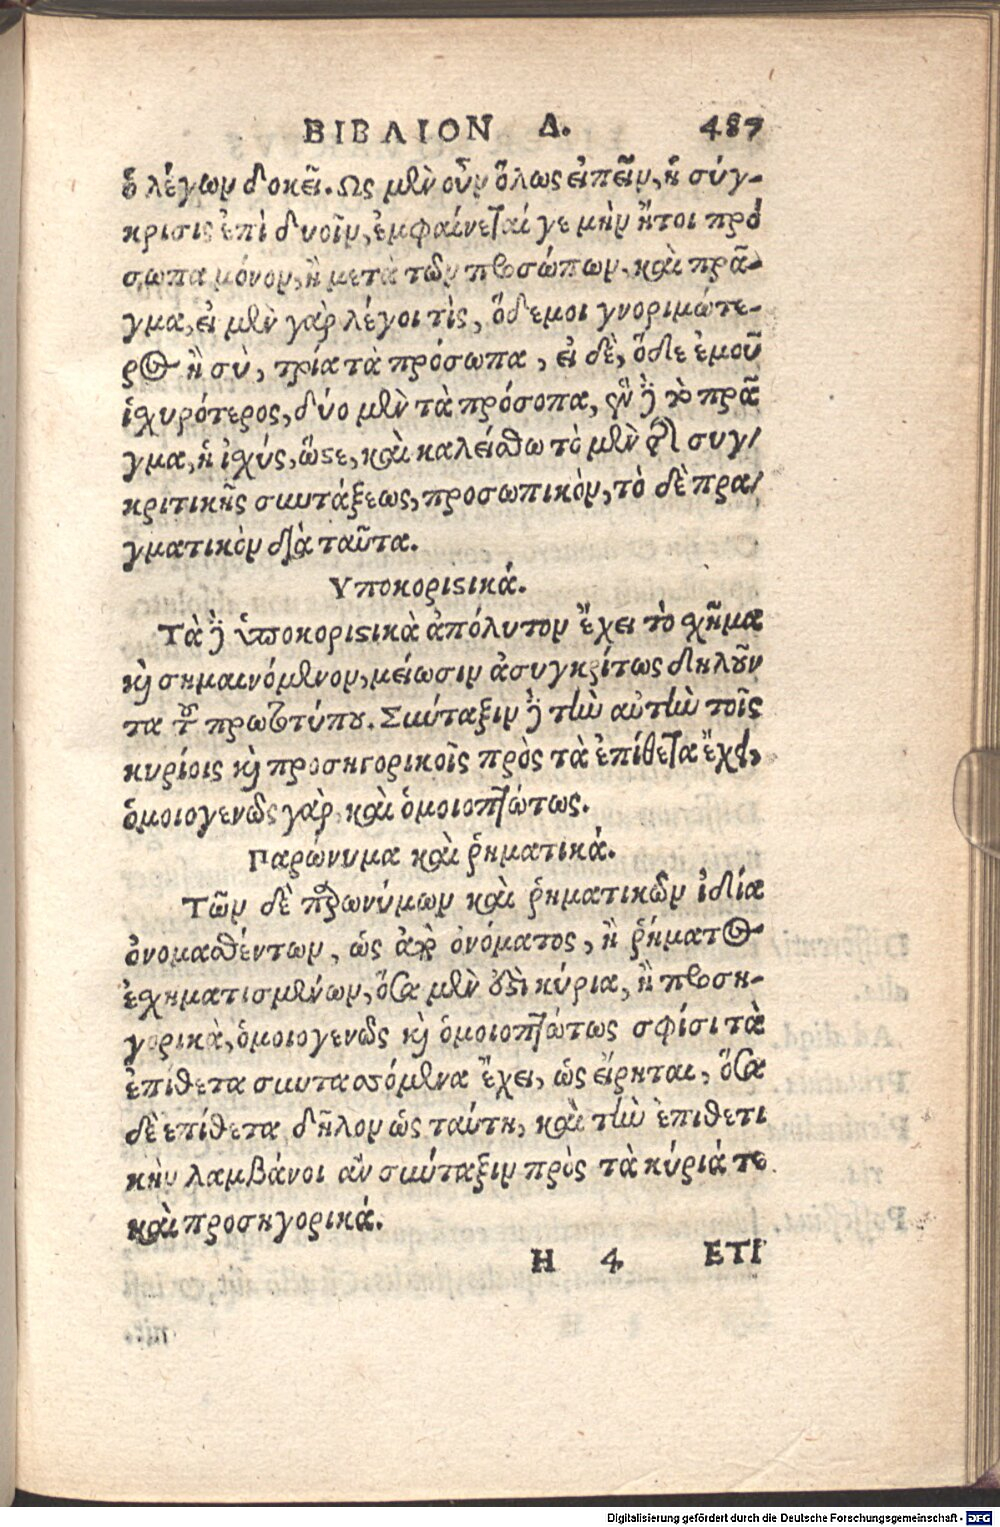 ΒΙΒΛΙΟΝ Δ. 487
ὁ λέγων δοκεῖ. Ως μὲν οὖν ὅλως εἰπεῖν, ἡ σύγ-
κρισις ἐπὶ δυοῖν, ἐμφαίνεται γε μὴν ἤτοι πρό
σωπα μόνον, ἢ μετὰ τῶν προσώπων, καὶ πρᾶ-
γμα, εἰ μὲν γὰρ λέγοι τὶς, ὅδεμοι γνοριμώτε-
ρος ἢ σὺ, τρία τὰ πρόσωπα, εἰ δὲ, ὅδε ἐμοῦ
ἰχυρότερος, δύο μὲν τὰ πρόσοπα, ἓν δὲ τὸ πρᾶ
γμα, ἡ ἰχύς, ὥστε, καὶ καλείσθω τὸ μὲν τῆς συγ/
κριτικῆς συντάξεως, προσωπικὸν, τὸ δὲ πρα/
γματικὸν διὰ ταῦτα.
Υποκοριστικά.
Τὰ δὲ ὑποκοριστικὰ ἀπόλυτον ἔχει τὸ σχῆμα
καὶ σημαινόμενον, μείωσιν ἀσυγκρίτως δηλοῦν
τα τοῦ πρωτοτύπου. Σύνταξιν δὲ τὴν αὐτὴν τοῖς
κυρίοις καὶ προσηγορικοῖς πρὸς τὰ ἐπίθετα ἔχει,
ὁμοιογενῶς γὰρ, καὶ ὁμοιοπτώτως.
Παρώνυμα καὶ ῥηματικά.
Τῶν δὲ παρωνύμων καὶ ῥηματικῶν ἰδία
ὀνομασθέντων, ὡς ἀπὸ ὀνόματος, ἢ ῥήματος
ἐχηματισμένων, ὅσα μὲν οὖν ἐστὶ κύρια, ἢ προση-
γορικὰ, ὁμοιογενῶς καὶ ὁμοιοπτώτως σφίσι τὰ
ἐπίθετα συντασσόμενα ἔχει, ὡς εἴρηται, ὅσα
δὲ ἐπίθετα δῆλον ὡς ταύτη, καὶ τὴν ἐπιθετι
κὴν λαμβάνοι ἂν σύνταξιν πρὸς τὰ κύριά τε
καὶ προσηγορικά.
Η 4 ΕΤΙ
Digitalisierung gefördert durch die Deutsche Forschungsgemeinschaft - DFG